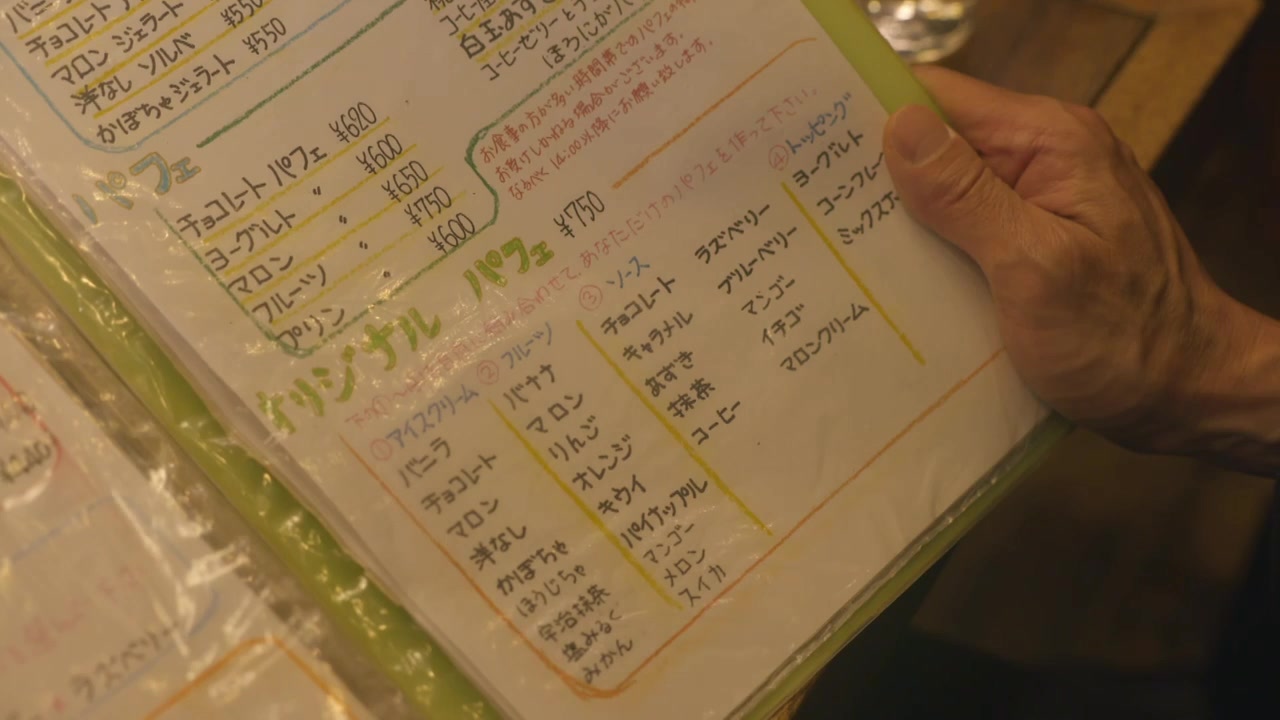 チョコレート
¥550
マロン ジェラート
¥550
洋なし ソルベ
かぼちゃジェラート
白玉あず
コーヒーゼリーと
ほろにが
お食事の方が多い時間帯でのパフェの
お受けしかねる場合がございます。
なるべく 14:00以降にお願い致します。
パフェ
チョコレート パフェ ¥620
ヨーグルト 〃 ¥600
マロン 〃 ¥650
フルーツ 〃 ¥750
プリン ¥600
オリジナル パフェ ¥750
組み合わせて、あなただけのパフェを作って下さい。
①アイスクリーム
バニラ
チョコレート
マロン
洋なし
かぼちゃ
ほうじちゃ
宇治抹茶
塩みるく
みかん
②フルーツ
バナナ
マロン
りんご
オレンジ
キウイ
パイナップル
マンゴー
メロン
スイカ
③ソース
チョコレート
キャラメル
あずき
抹茶
コーヒー
ラズベリー
ブルーベリー
マンゴー
イチゴ
マロンクリーム
④トッピング
ヨーグルト
コーンフレー
ミックス
ラズベリー